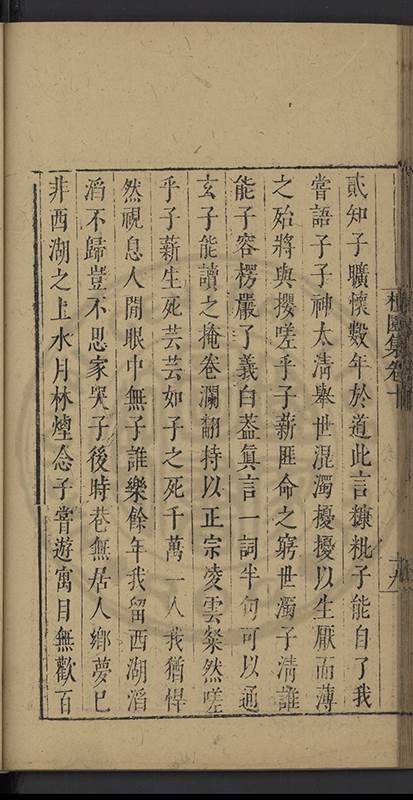 貳知子曠懷數年於道此言糠粃子能自了我
嘗語子子神太淸舉世混濁擾擾以生厭而薄
之殆將與攖嗟乎子薪匪命之窮世濁子淸誰
能子容楞嚴了義白葢眞言一詞半句可以通
玄子能讀之掩卷瀾翻持以正宗凌雲粲然嗟
乎子薪生死芸芸如子之死千萬一人我猶悍
然視息人間眼中無子誰樂餘年我留西湖滔
滔不歸豈不思家哭子後時巷無居人鄉夢已
非西湖之上水月林煙念子嘗遊寓目無歡百
園集卷十